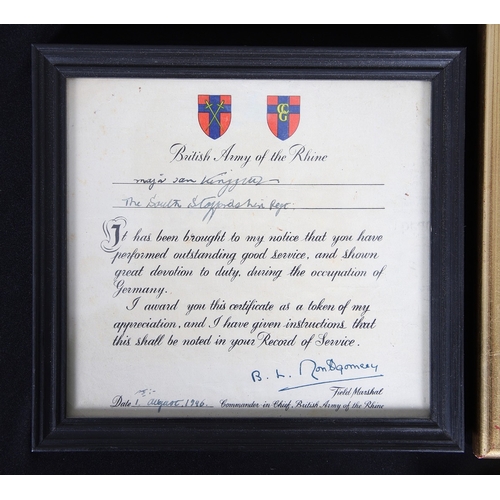 CC
G
British Army of the Rhine
Major Ian
The South Staffordshire Regt.
It has been brought to my notice that you have
performed outstanding good service, and shown
great devotion to duty, during the occupation of
Germany.
I award you this certificate as a token of my
appreciation, and I have given instructions, that
this shall be noted in your Record of Service.
B. L. Montgomery
Field Marshal
Date 1 August, 1946. Commander in Chief, British Army of the Rhine